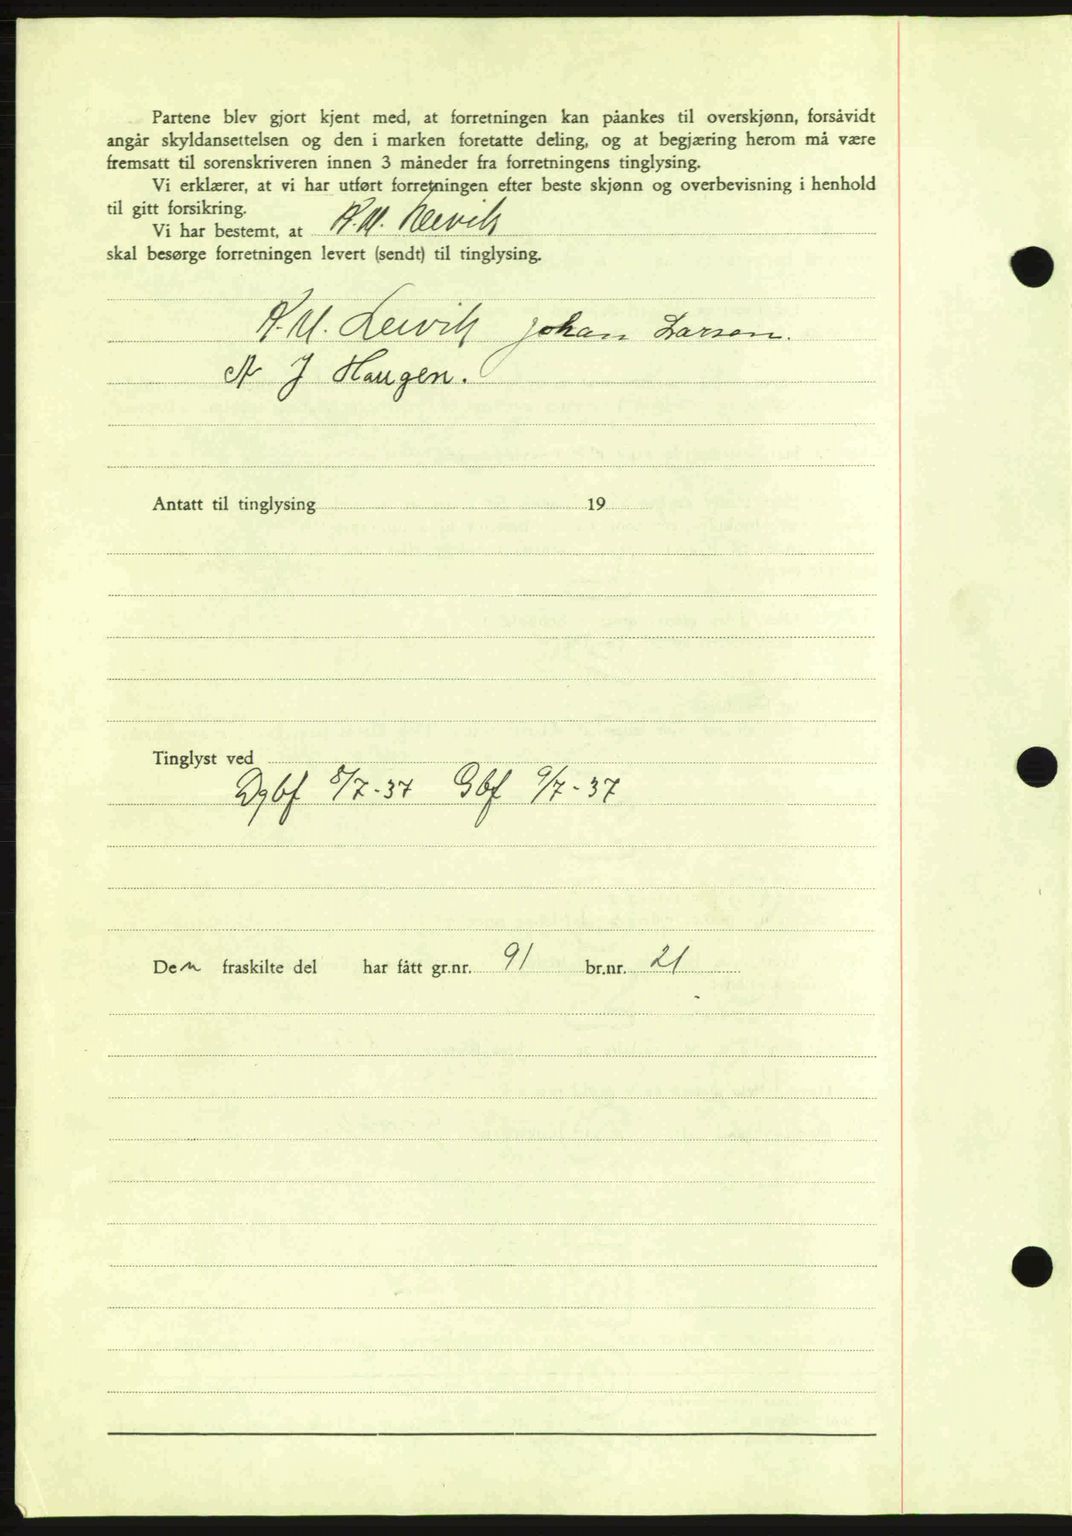 Partene blev gjort kjent med, at forretningen kan påankes til overskjønn, forsåvidt
angår skyldansettelsen og den i marken foretatte deling, og at begjæring herom må være
fremsatt til sorenskriveren innen 3 måneder fra forretningens tinglysing.
Vi erklærer, at vi har utført forretningen efter beste skjønn og overbevisning i henhold
til gitt forsikring.
Vi har bestemt, at
skal besørge forretningen levert (sendt) til tinglysing.
Johan Larsen.
J Haugen.
Antatt til tinglysing 19
Tinglyst ved
Dgbf 8/7-37 Gbf 9/7-37
Den fraskilte del har fått gr.nr. 91 br.nr. 21